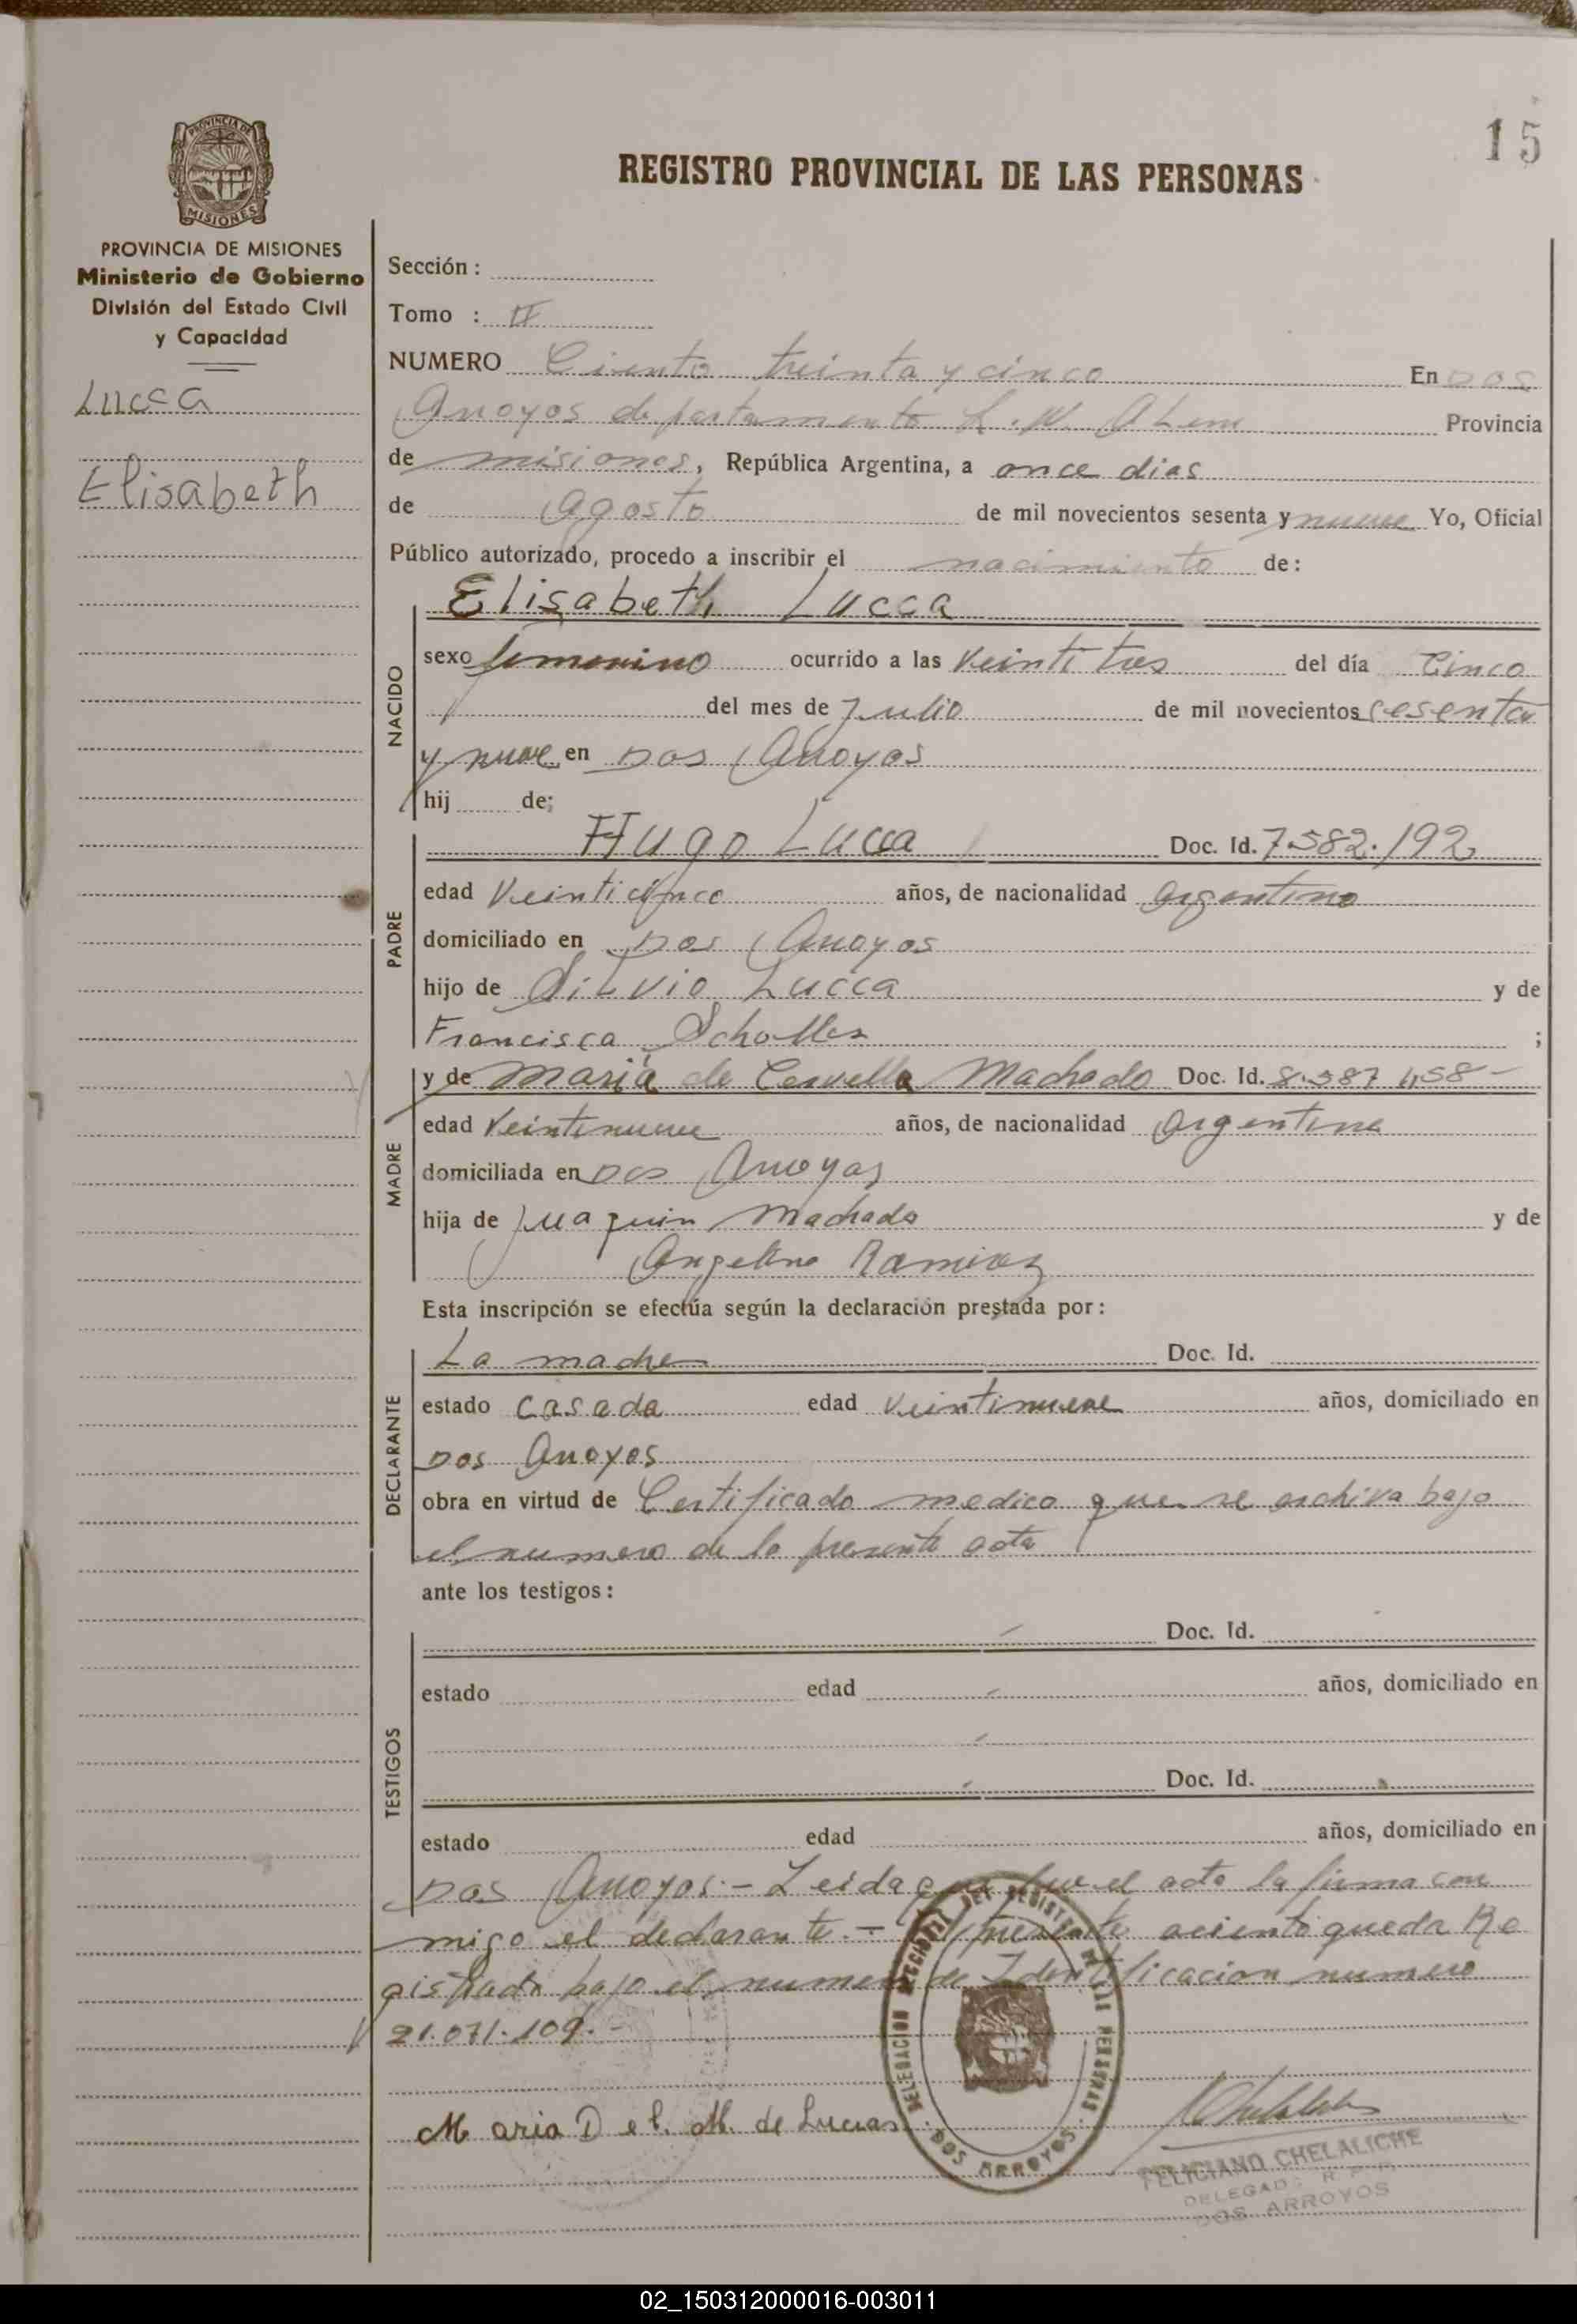 15
PROVINCIA DE
MISIONES
REGISTRO PROVINCIAL DE LAS PERSONAS
PROVINCIA DE MISIONES
Ministerio de Gobierno
División del Estado Civil
y Capacidad
Lucca
Elisabeth
Sección :
Tomo : II
NUMERO Ciento treinta y cinco En Dos
Arroyos departamento L. N. Alem Provincia
de misiones, República Argentina, a once dias
de Agosto de mil novecientos sesenta y nueve Yo, Oficial
Público autorizado, procedo a inscribir el nacimiento de:
Elisabeth Lucca
NACIDO
sexo femenino ocurrido a las Veinti tres del día Cinco
del mes de Julio de mil novecientos sesenta
y nueve en Dos Arroyos
hij de:
PADRE
Hugo Lucca Doc. Id. 7.582.192
edad Veinticinco años, de nacionalidad argentino
domiciliado en Dos Arroyos
hijo de Silvio Lucca y de
Francisca ;
MADRE
y de Maria de Machado Doc. Id. 8.587 458-
edad Veintinueve años, de nacionalidad Argentina
domiciliada en Dos Arroyos
hija de Juaquin Machado y de
Angelina Ramirez
Esta inscripción se efectúa según la declaración prestada por:
DECLARANTE
La madre Doc. Id.
estado casada edad veintinueve años, domiciliado en
Dos Arroyos
obra en virtud de Certificado medico que se archiva bajo
el numero de la presente acta
ante los testigos:
TESTIGOS
Doc. Id.
estado edad años, domiciliado en
Doc. Id.
estado edad años, domiciliado en
Dos Arroyos.- Leida que fue el acta la firma con
migo el declarante.- El presente aciento queda Re
gistrado bajo el numero de Identificacion numero
21.071.109.-
Maria D el. M. de Luccas
DELEGACION DIRECCION DEL REGISTRO DE LAS PERSONAS
DOS ARROYOS
FELICIANO CHELALICHE
DELEGADO R. P. P.
DOS ARROYOS
02_150312000016-003011